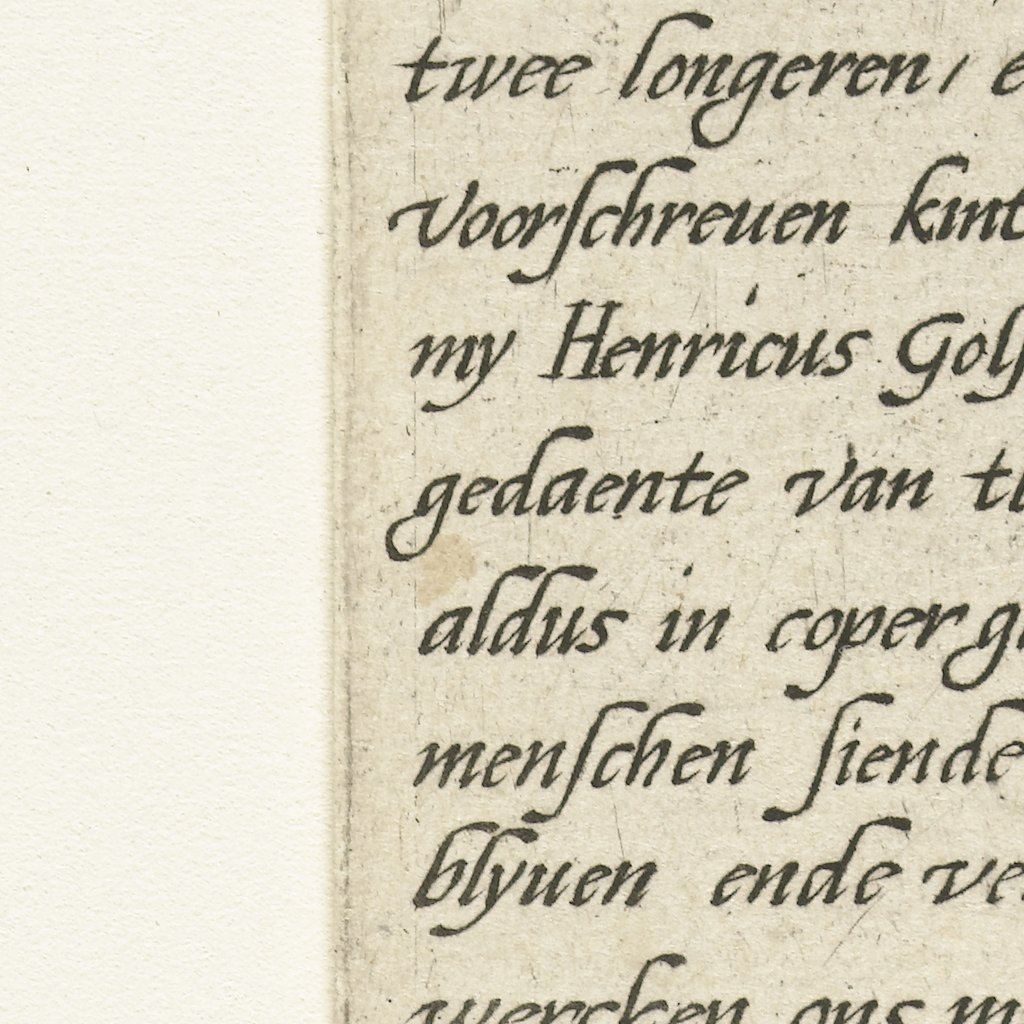 twee longeren / e
voorſchreuen kint
my Henricus Golſ
gedaente van
aldus in coper
menſchen ſiende
blyuen ende ve
wercken ons